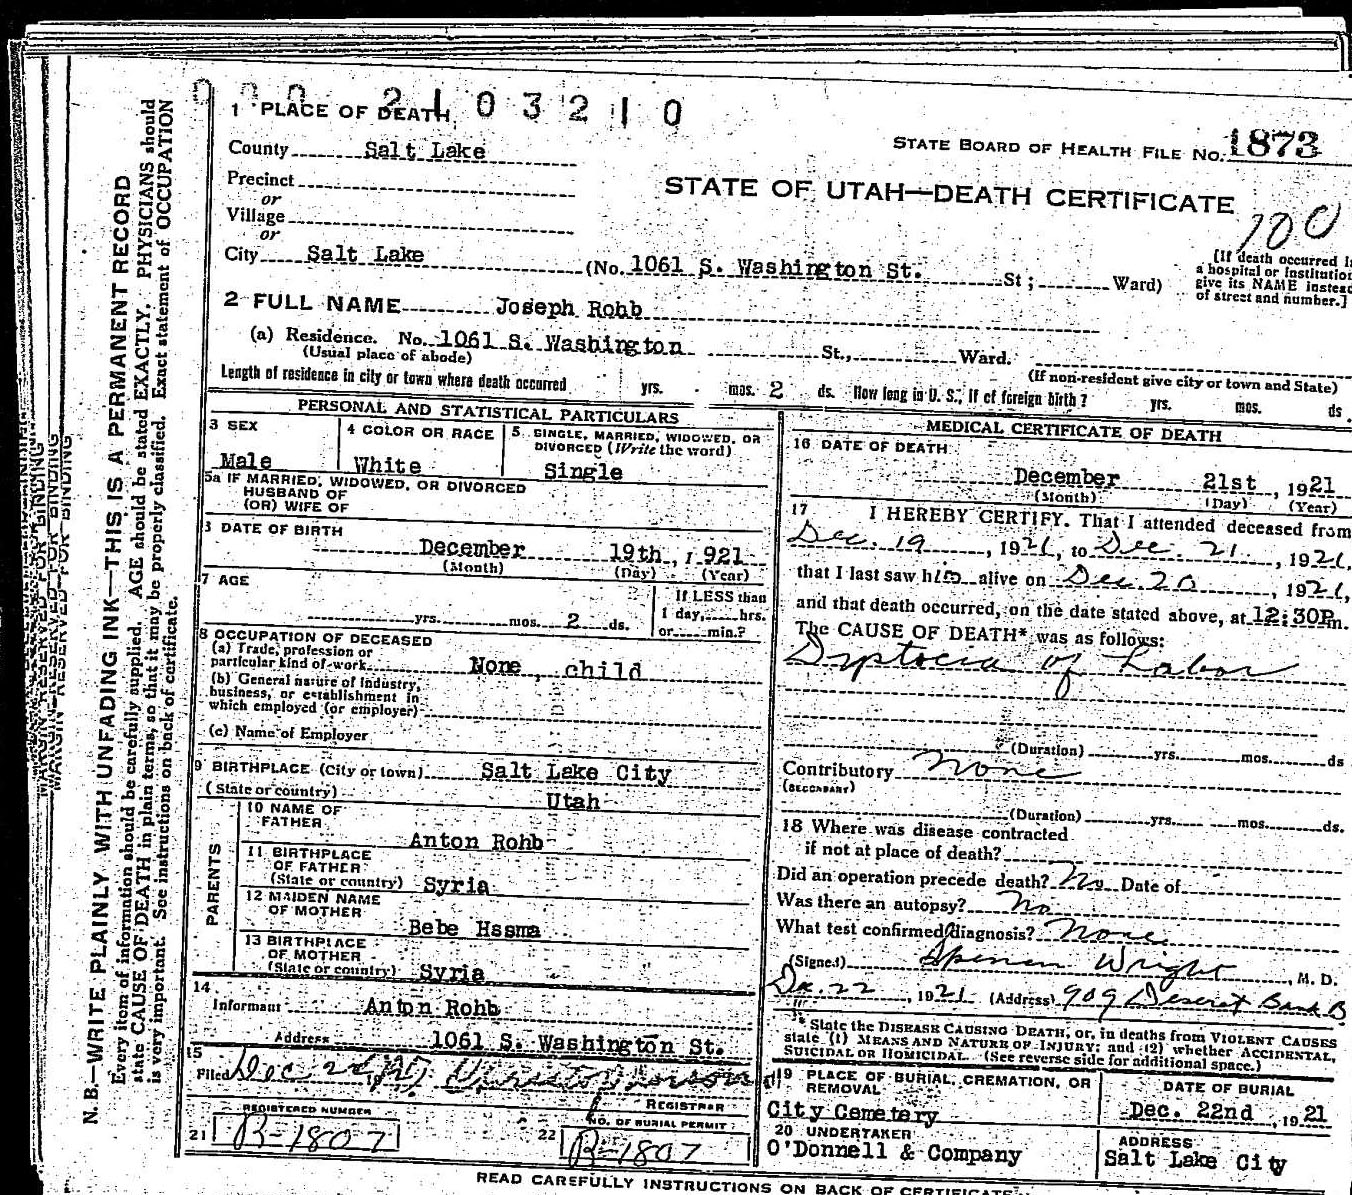 0 0 0 2 1 0 3 2 1 0
1 PLACE OF DEATH
STATE BOARD OF HEALTH FILE NO. 1873
County Salt Lake
STATE OF UTAH—DEATH CERTIFICATE
Precinct
or
Village
or
100
City Salt Lake (No. 1061 S. Washington St. St; Ward)
[If death occurred in
a hospital or institution
give its NAME instead
of street and number.]
2 FULL NAME Joseph Rohb
(a) Residence. No. 1061 S. Washington St., Ward.
(Usual place of abode)
(If non-resident give city or town and State)
Length of residence in city or town where death occurred yrs. mos. 2 ds. How long in U. S., if of foreign birth? yrs. mos. ds.
PERSONAL AND STATISTICAL PARTICULARS
3 SEX
Male
4 COLOR OR RACE
White
5 SINGLE, MARRIED, WIDOWED, OR
DIVORCED (Write the word)
Single
5a IF MARRIED, WIDOWED, OR DIVORCED
HUSBAND OF
(OR) WIFE OF
DATE OF BIRTH
December 19th, 1921
(Month) (Day) (Year)
7 AGE
yrs. mos. 2 ds.
If LESS than
1 day, hrs.
or min.?
8 OCCUPATION OF DECEASED
(a) Trade, profession or
particular kind of work None, child
(b) General nature of industry,
business, or establishment in
which employed (or employer)
(c) Name of Employer
9 BIRTHPLACE (City or town) Salt Lake City
(State or country) Utah
PARENTS
10 NAME OF
FATHER
Anton Rohb
11 BIRTHPLACE
OF FATHER
(State or country) Syria
12 MAIDEN NAME
OF MOTHER
Bebe Hssma
13 BIRTHPLACE
OF MOTHER
(State or country) Syria
14
Informant Anton Rohb
Address 1061 S. Washington St.
15
Filed Dec
REGISTRAR
REGISTERED NUMBER
21 B-1807
NO. OF BURIAL PERMIT
22 B-1807
MEDICAL CERTIFICATE OF DEATH
16 DATE OF DEATH
December 21st, 1921
(Month) (Day) (Year)
17 I HEREBY CERTIFY. That I attended deceased from
Dec. 19, 1921, to Dec. 21, 1921,
that I last saw him alive on Dec. 20, 1921,
and that death occurred, on the date stated above, at 12:30P m.
The CAUSE OF DEATH* was as follows:
Dyptocia of Labor
(Duration) yrs. mos. ds
Contributory None
(SECONDARY)
(Duration) yrs. mos. ds.
18 Where was disease contracted
if not at place of death?
Did an operation precede death? No Date of
Was there an autopsy? No
What test confirmed diagnosis? None
(Signed) Spencer Wright, M. D.
Dec. 22, 1921 (Address) 909 Deseret Bank B
* State the DISEASE CAUSING DEATH, or, in deaths from VIOLENT CAUSES
state (1) MEANS AND NATURE OF INJURY; and (2) whether ACCIDENTAL,
SUICIDAL OR HOMICIDAL. (See reverse side for additional space.)
19 PLACE OF BURIAL, CREMATION, OR
REMOVAL
City Cemetery
DATE OF BURIAL
Dec. 22nd, 1921
20 UNDERTAKER
O'Donnell & Company
ADDRESS
Salt Lake City
READ CAREFULLY INSTRUCTIONS ON BACK OF CERTIFICATE
N. B.—WRITE PLAINLY WITH UNFADING INK—THIS IS A PERMANENT RECORD
Every item of information should be carefully supplied. AGE should be stated EXACTLY. PHYSICIANS should
state CAUSE OF DEATH in plain terms, so that it may be properly classified. Exact statement of OCCUPATION
is very important. See instructions on back of certificate.
MARGIN RESERVED FOR BINDING